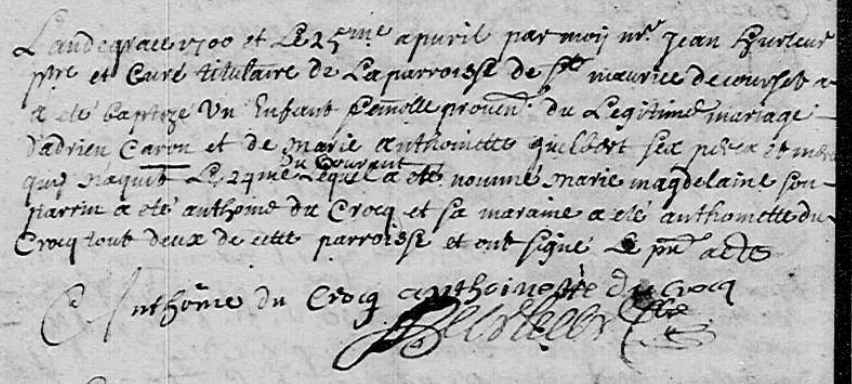 L'an de grace 1700 et Le 25me apuril par moij mr. Jean hurteur
ptre et Curé titulaire de La parroisse de St maurice decourset a
a eté baptizé Un Enfant femelle proven. du Legitime mariage
d'adrien Caron et de Marie anthoinette guilbert ses pere et mere
qui naquit Le 24me du Courant Lequel a eté nommé Marie magdelaine son
parrin a eté anthoine du Crocq et sa maraine a eté anthoinette du
Crocq tout deux de cette parroisse et ont signé Le pnt acte
Anthoine du Crocq anthoinette du Crocq